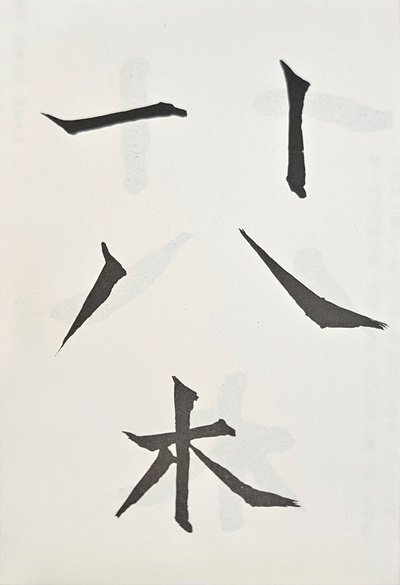 一 丨
丿 ㇏
木